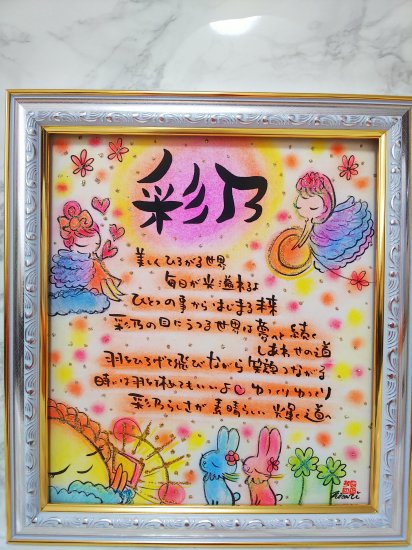 彩乃
美しくひろがる世界
毎日が光溢れるよ
ひとつの事からはじまる未来
彩乃の目にうつる世界は夢へと続く
しあわせの道
羽をひろげて飛びながら笑顔つながる
時には羽を休めてもいいよ ゆっくりゆっくり
彩乃らしさが素晴らしい 光輝く道へ